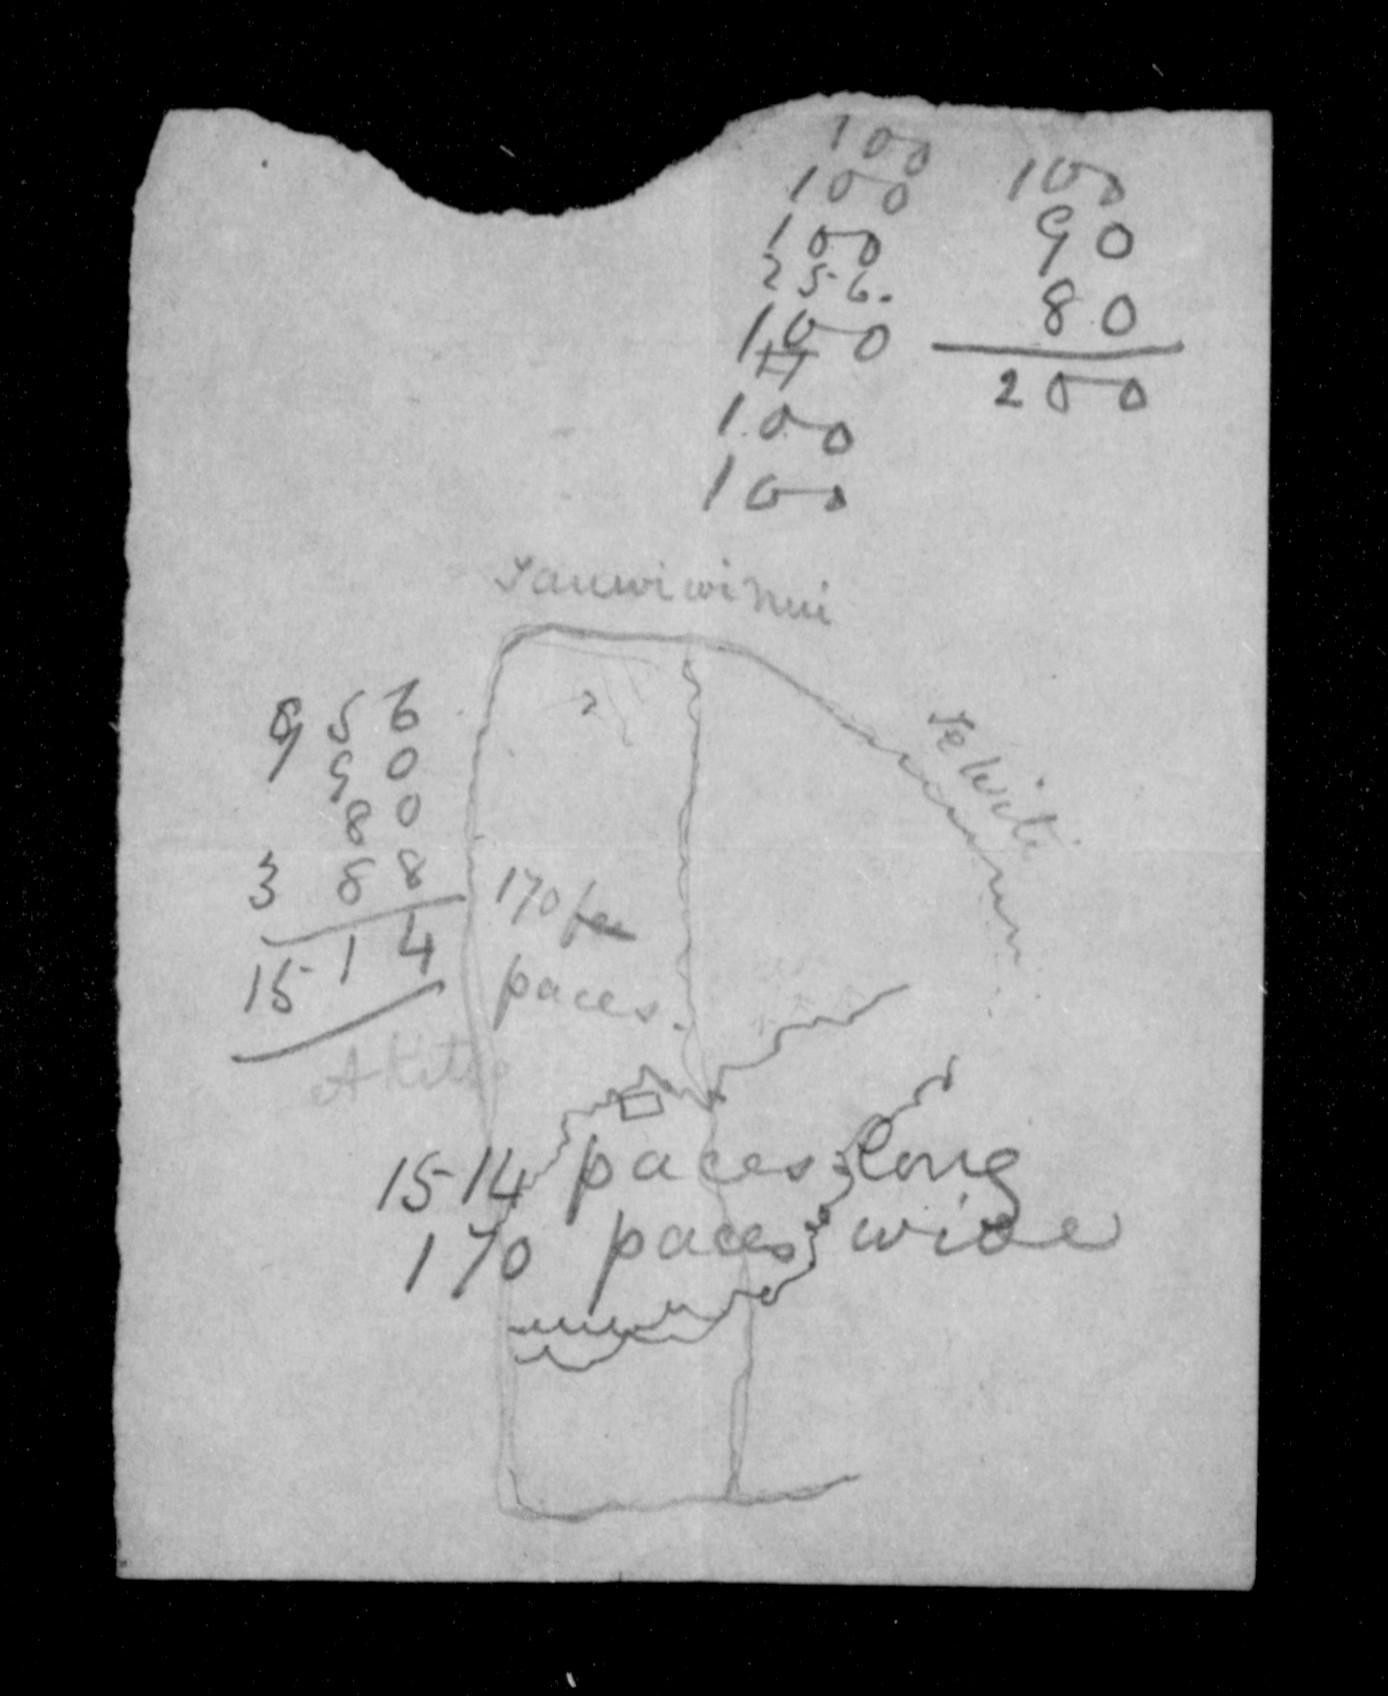 100
100
100
256.
100
100
100
100
90
80
200
Tauwiwi nui
Te Witi
956
90
80
388
1514
170
paces.
1514 paces long
170 paces wide